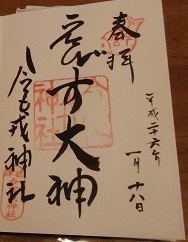 奉拝
平成二十六年
一月十八日
ゑびす大神
今宮戎神社